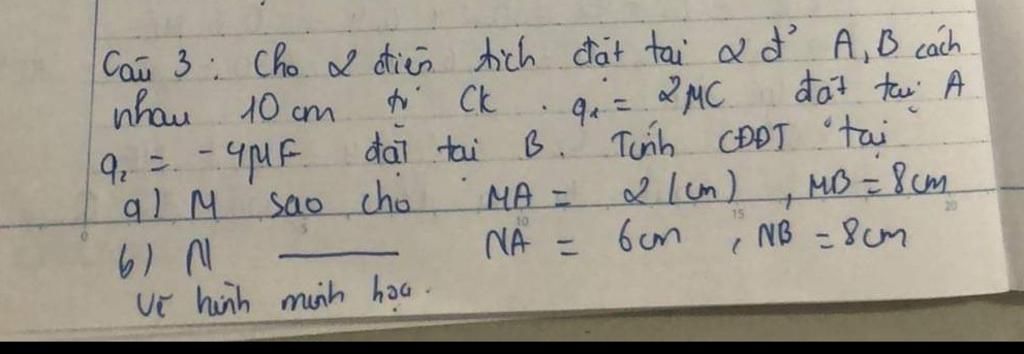 Câu 3 : Cho 2 điện tích đặt tại 2 đ' A, B cách
nhau 10 cm tr' CK . q₁ = 2μC đặt tại A
q₂ = -4μF đặt tại B. Tính CĐĐT tại
a) M sao cho MA = 2 (cm) , MB = 8cm
b) N —— NA = 6cm , NB = 8cm
Vẽ hình minh họa.